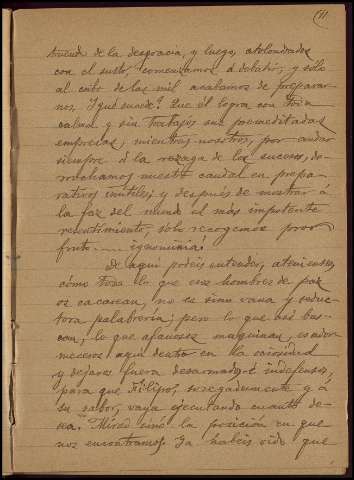 (11
truendo de la desgracia, y luego, atolondrados
con el susto, comenzamos á debatir, y sólo
al cabo de las mil acabamos de preparar-
nos. Y qué sucede? Que él logra con toda
calma y sin trabajos sus premeditadas
empresas, mientras nosotros, por andar
siempre á la rezaga de los sucesos, de-
rrochamos nuestro caudal en prepa-
rativos inutiles; y después de mostrar á
la faz del mundo el más impotente
resentimiento, sólo recogemos por
fruto ..... ignominia!
De aquí podeis entender, atenienses,
cómo todo lo que esos hombres de paz
os cacarean, no es sino vana y seduc-
tora palabrería; pero lo que así bus-
can, lo que afanosos maquinan, es ador-
meceros aquí dentro en la ociosidad
y dejaros fuera desarmados é indefensos,
para que Filipo, sosegadamente y á
su sabor, vaya ejecutando cuanto de-
sea. Mirad sinó la posición en que
nos encontramos. Ya habeis oido que